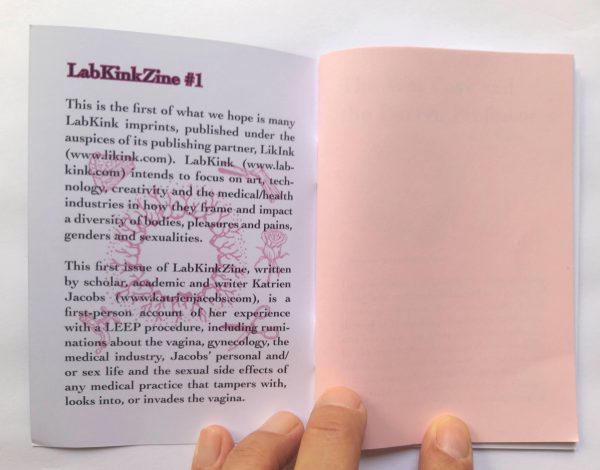 LabKinkZine #1
This is the first of what we hope is many
LabKink imprints, published under the
auspices of its publishing partner, LikInk
(www.likink.com). LabKink (www.lab-
kink.com) intends to focus on art, tech-
nology, creativity and the medical/health
industries in how they frame and impact
a diversity of bodies, pleasures and pains,
genders and sexualities.
This first issue of LabKinkZine, written
by scholar, academic and writer Katrien
Jacobs (www.katrienjacobs.com), is a
first-person account of her experience
with a LEEP procedure, including rumi-
nations about the vagina, gynecology, the
medical industry, Jacobs' personal and/
or sex life and the sexual side effects of
any medical practice that tampers with,
looks into, or invades the vagina.